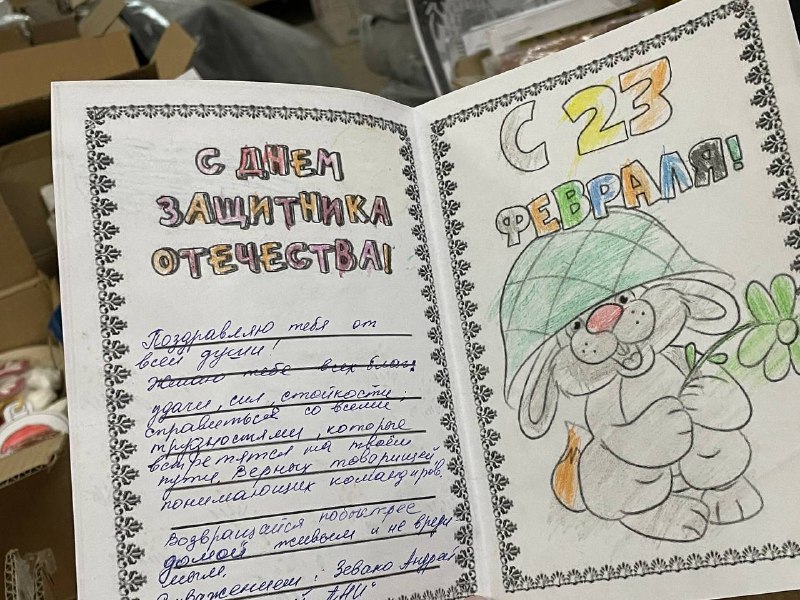 С ДНЕМ
ЗАЩИТНИКА
ОТЕЧЕСТВА!
Поздравляю тебя от
всей души!
Желаю тебе всех благ:
удачи, сил, стойкости;
справиться со всеми
трудностями, которые
встретятся на твоём
пути. Верных товарищей
понимающих командиров.
Возвращайся побыстрее
домой живым и не вреди
мым.
уважением: Андрей
С 23
ФЕВРАЛЯ!